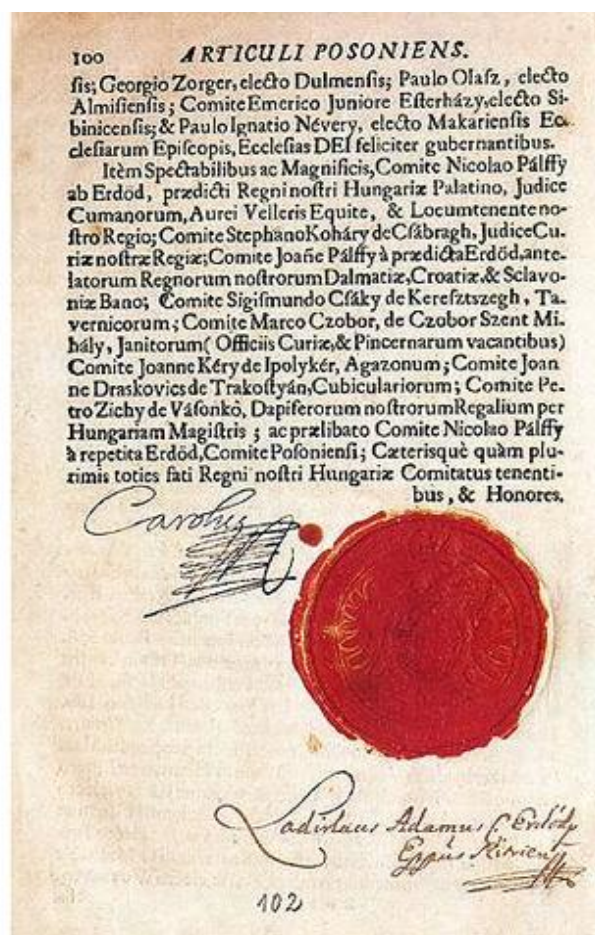 100 ARTICULI POSONIENS.
sis; Georgio Zorger, electo Dulmensis; Paulo Olasz, electo
Almisiensis; Comite Emerico Juniore Esterházy, electo Si-
binicensis; & Paulo Ignatio Névery, electo Makariensis Ec-
clesiarum Episcopis, Ecclesias DEI feliciter gubernantibus.
Itèm Spectabilibus ac Magnificis, Comite Nicolao Pálffy
ab Erdöd, prædicti Regni nostri Hungariæ Palatino, Judice
Cumanorum, Aurei Velleris Equite, & Locumtenente no-
stro Regio; Comite Stephano Koháry de Csábragh, Judice Cu-
riæ nostræ Regiæ; Comite Joañe Pálffy à prædicta Erdöd, ante-
latorum Regnorum nostrorum Dalmatiæ, Croatiæ, & Sclavo-
niæ Bano; Comite Sigismundo Csáky de Keresztszegh, Ta-
vernicorum; Comite Marco Czobor, de Czobor Szent Mi-
hály, Janitorum ( Officiis Curiæ, & Pincernarum vacantibus)
Comite Joanne Kéry de Ipolykér, Agazonum; Comite Joan
ne Draskovics de Trakostyán, Cubiculariorum; Comite Pe-
tro Zichy de Vásonkö, Dapiferorum nostrorum Regalium per
Hungariam Magistris ; ac prælibato Comite Nicolao Pálffy
à repetita Erdöd, Comite Posoniensi; Cæterisquè quàm plu-
rimis toties fati Regni nostri Hungariæ Comitatus tenenti-
bus, & Honores.
Carolus
Ladislaus Adamus C. Erdődy
Eppus Nitrien
102